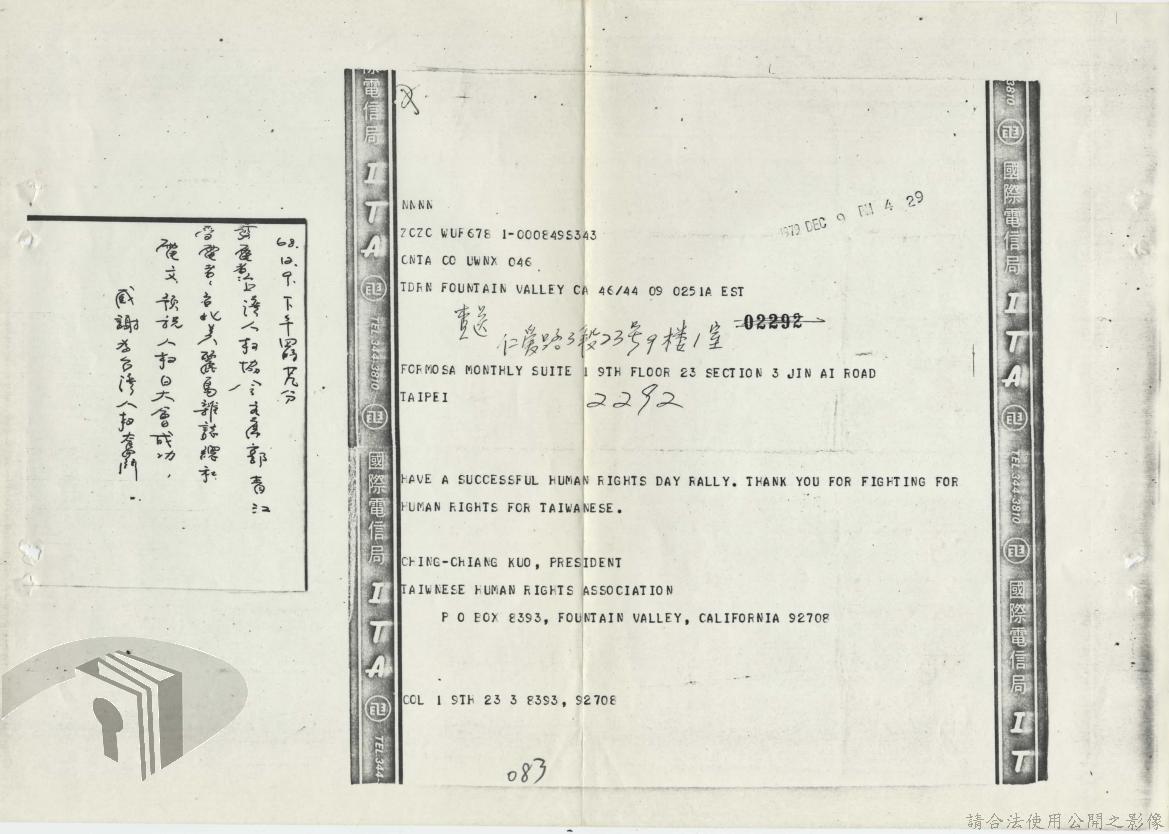 68.12.9.下午四時廿九分
發電者:台灣人权協會主席郭青江
受電者:台北美麗島雜誌總社
電文 預祝人权日大會成功,
感謝為台灣人权奮鬥.
際電信局 ITA TEL:344-3810 國際電信局 ITA TEL:344-
1979 DEC 9 PM 4 29
NNNN
ZCZC WUF678 1-0008495343
CNTA CO UWNX 046
TDRN FOUNTAIN VALLEY CA 46/44 09 0251A EST
查送
仁愛路3段23号9楼1室
02292
FORMOSA MONTHLY SUITE 1 9TH FLOOR 23 SECTION 3 JIN AI ROAD
TAIPEI
2292
HAVE A SUCCESSFUL HUMAN RIGHTS DAY RALLY. THANK YOU FOR FIGHTING FOR
HUMAN RIGHTS FOR TAIWANESE.
CHING-CHIANG KUO, PRESIDENT
TAIWNESE HUMAN RIGHTS ASSOCIATION
P O BOX 8393, FOUNTAIN VALLEY, CALIFORNIA 92708
COL 1 9TH 23 3 8393, 92708
083
3810 國際電信局 ITA TEL:344-3810 國際電信局 IT
請合法使用公開之影像